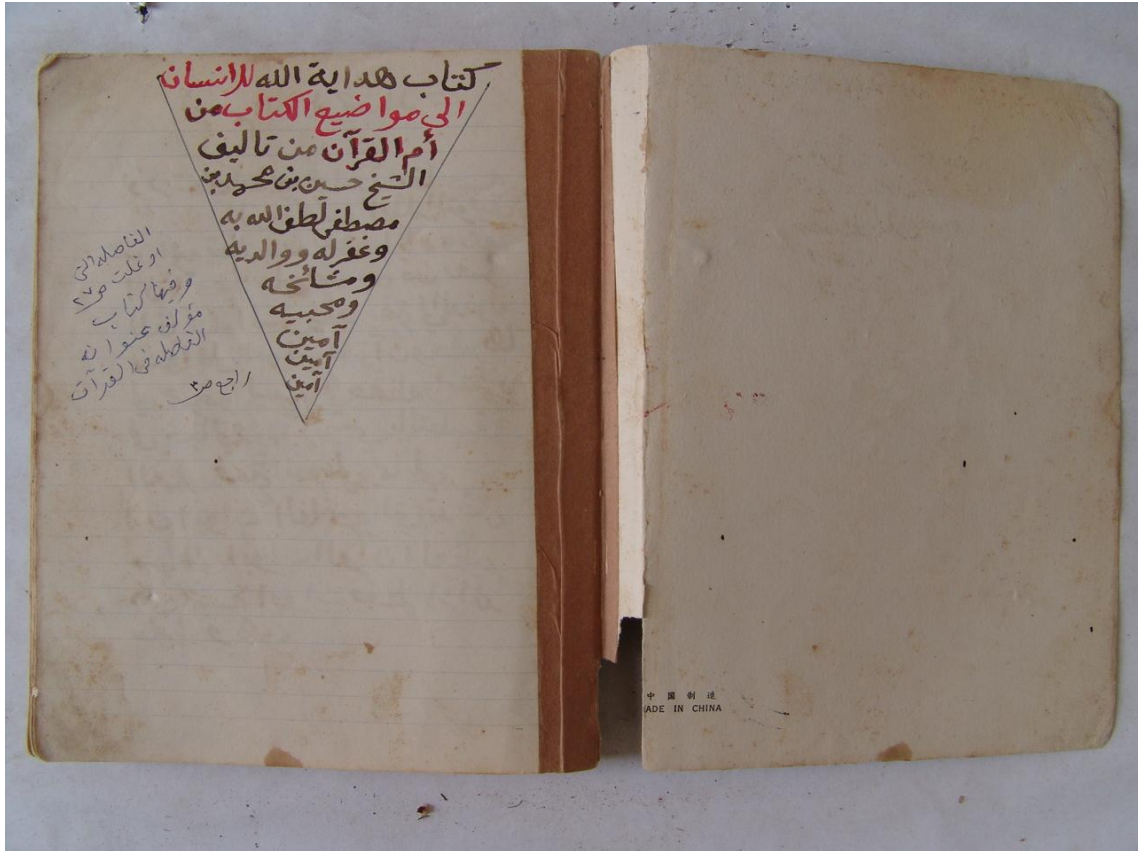 كتاب هداية الله للانسان
الى مواضيع الكتاب من
أم القرآن من تاليف
الشيخ حسين بن محمد بن
مصطفى لطف الله به
وغفر له ووالديه
ومشائخه
ومحبيه
آمين
آمين
آمين
الفاصله التى
ص ٢٧
وفيها كتاب
مؤلف عنوانه
الفاصله فى القرآن
راجع ص٣
中国制造
ADE IN CHINA